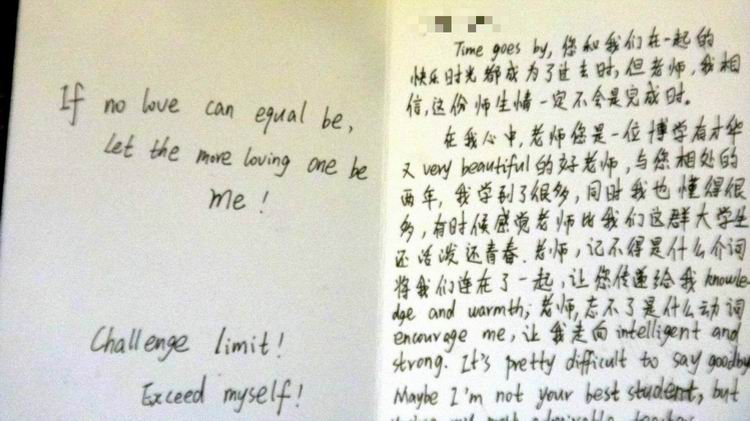 If no love can equal be,
Let the more loving one be
Me!
Challenge limit!
Exceed myself!
Time goes by, 您和我们在一起的
快乐时光都成为了过去时,但老师,我相
信,这份师生情一定不会是完成时。
在我心中,老师您是一位博学有才华
又very beautiful的好老师,与您相处的
两年,我学到了很多,同时我也懂得很
多,有时候感觉老师比我们这群大学生
还活泼还青春。老师,记不得是什么介词
将我们连在了一起,让您传递给我knowle-
dge and warmth; 老师,忘不了是什么动词
encourage me, 让我走向intelligent and
strong. It's pretty difficult to say goodby
Maybe I'm not your best student, but
my most admirable teacher